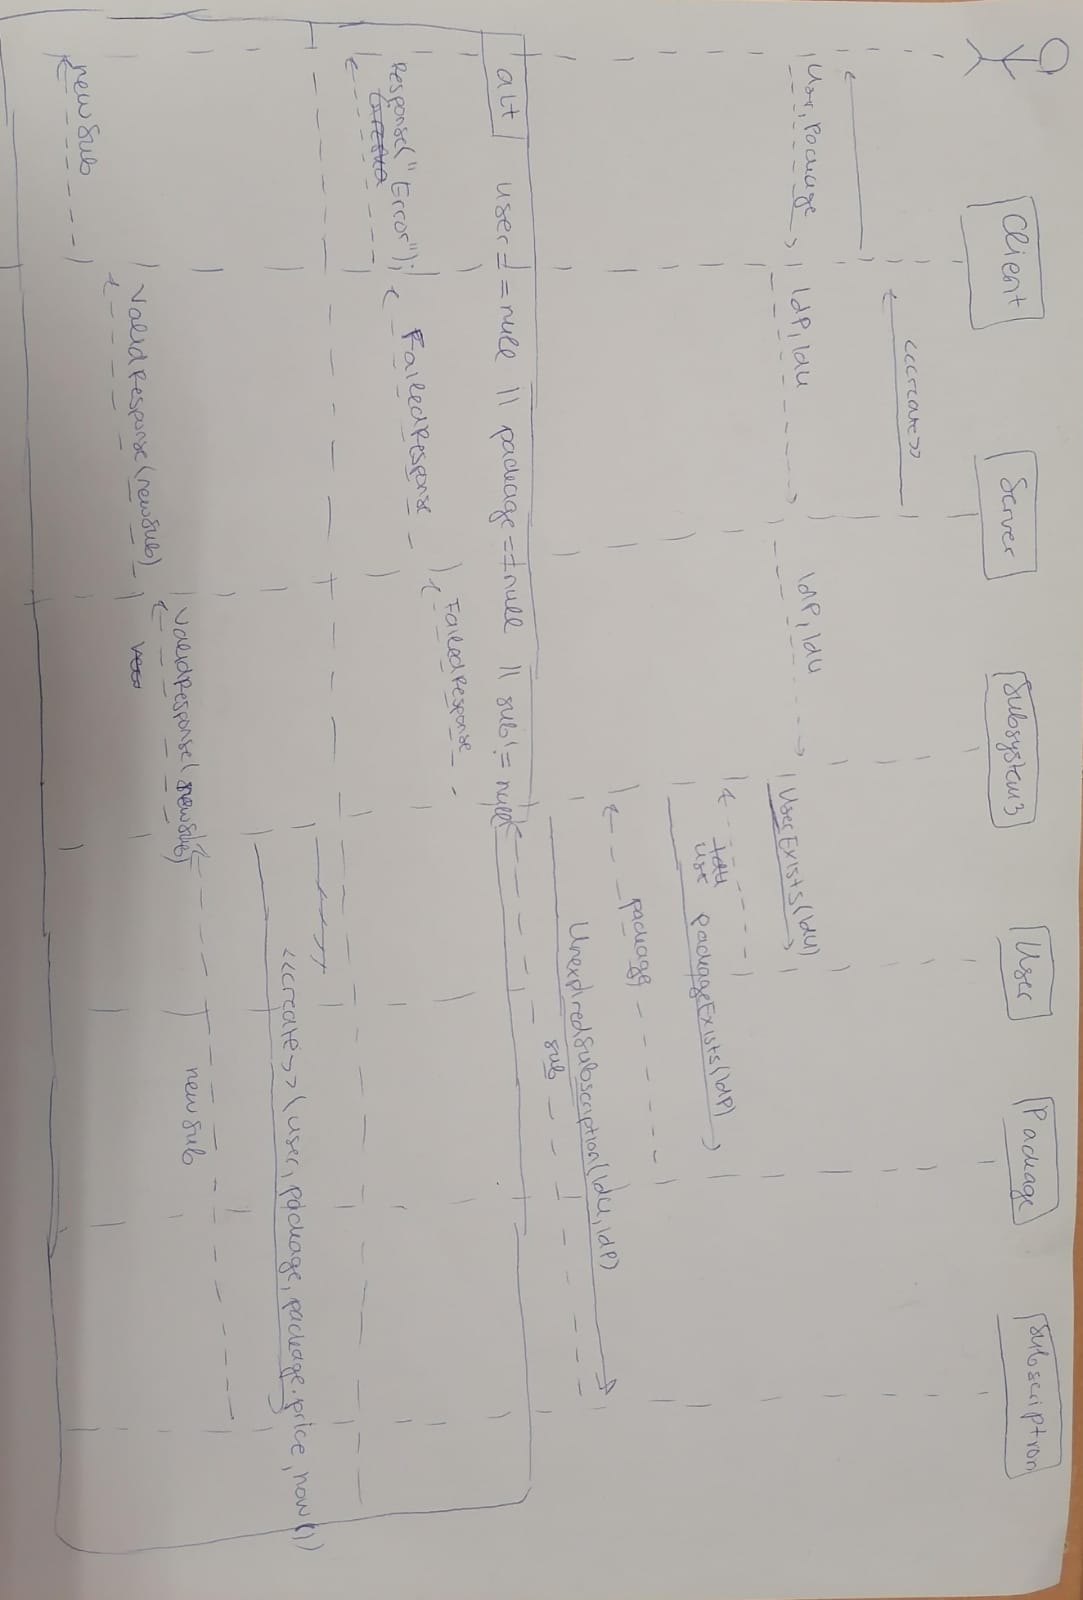 Client
Server
Subsystem3
User
Package
Subscription
<<create>>
User, Package
IdP, IdU
IdP, IdU
UserExists(IdU)
user
packageExists(IdP)
package
UnexpiredSubscription(IdU, IdP)
sub
alt
user == null || package == null || sub != null
FailedResponse
FailedResponse
Response("Error");
<<create>> (user, package, package.price, now())
newSub
ValidResponse(newSub)
ValidResponse(newSub)
newSub